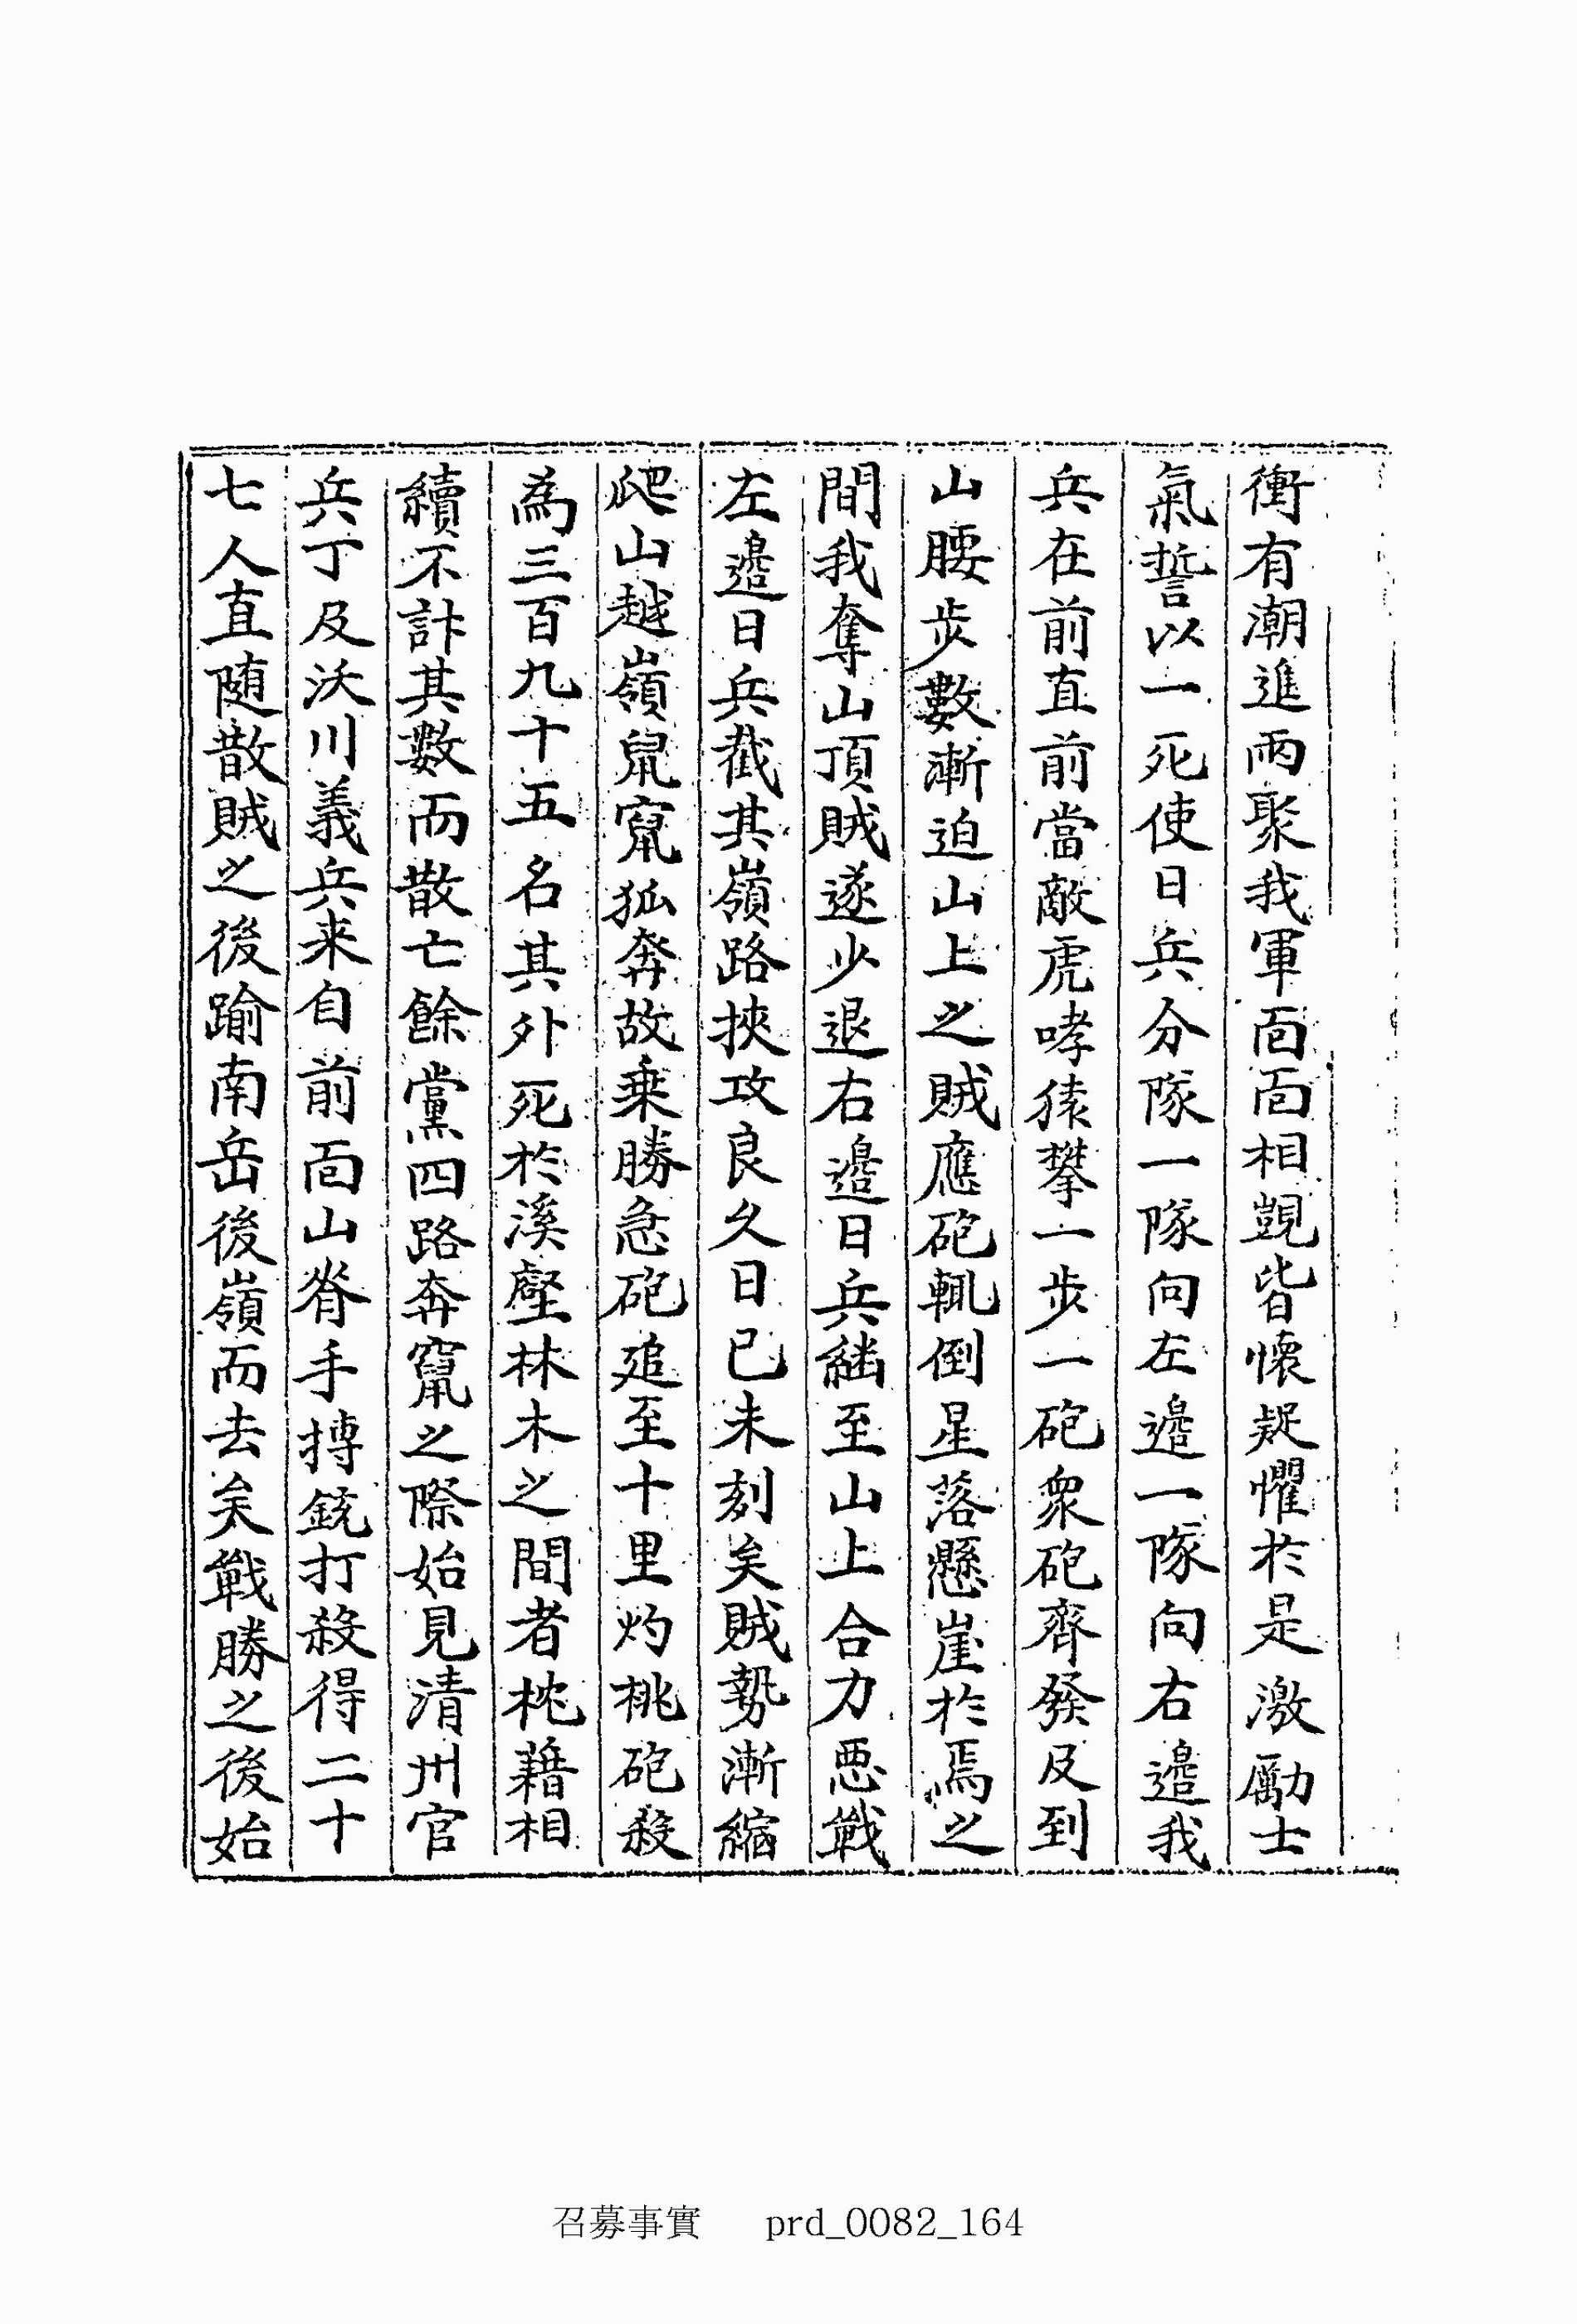 衝有潮進兩聚我軍面面相覬皆懷疑懼於是激勵士
氣誓以一死使日兵分隊一隊向左邊一隊向右邊我
兵在前直前當敵虎哮猿攀一步一砲衆砲齊發及到
山腰步數漸迫山上之賊應砲輒倒星落懸崖於焉之
間我奪山頂賊遂少退右邊日兵繼至山上合力惡戰
左邊日兵截其嶺路挾攻良久日已未刻矣賊勢漸縮
爬山越嶺鼠竄狐奔故乘勝急砲追至十里灼桃砲殺
為三百九十五名其外死於溪壑林木之間者枕藉相
續不計其數而散亡餘黨四路奔竄之際始見清州官
兵丁及沃川義兵来自前面山脊手搏銃打殺得二十
七人直随散賊之後踰南岳後嶺而去矣戰勝之後始
召募事實 prd_0082_164